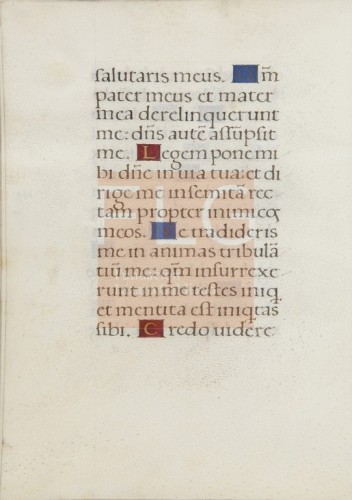 salutaris meus. Qm̄
pater meus et mater
mea derelinquerunt
me: dñs autē assūpsit
me. Legem pone mi
bi dñe in uia tua: et di
rige me in semitā rec
tam propter inimicoꝝ
meos. Ne tradideris
me in animas tribulā
tiū me: qm̄ insurrexe
runt in me testes iniq
et mentita est iniqtas
sibi. Credo uidere
FLC